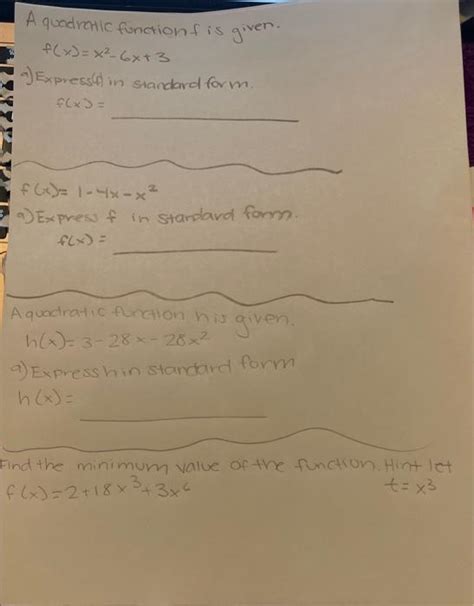 A quadratic function f is given.
f(x) = x² - 6x + 3
a) Express(f) in standard form.
f(x) =
f(x) = 1 - 4x - x²
a) Express f in standard form.
f(x) =
A quadratic function h is given.
h(x) = 3 - 28x - 28x²
a) Express h in standard form
h(x) =
Find the minimum value of the function. Hint let
f(x) = 2 + 18x³ + 3x⁶ t = x³